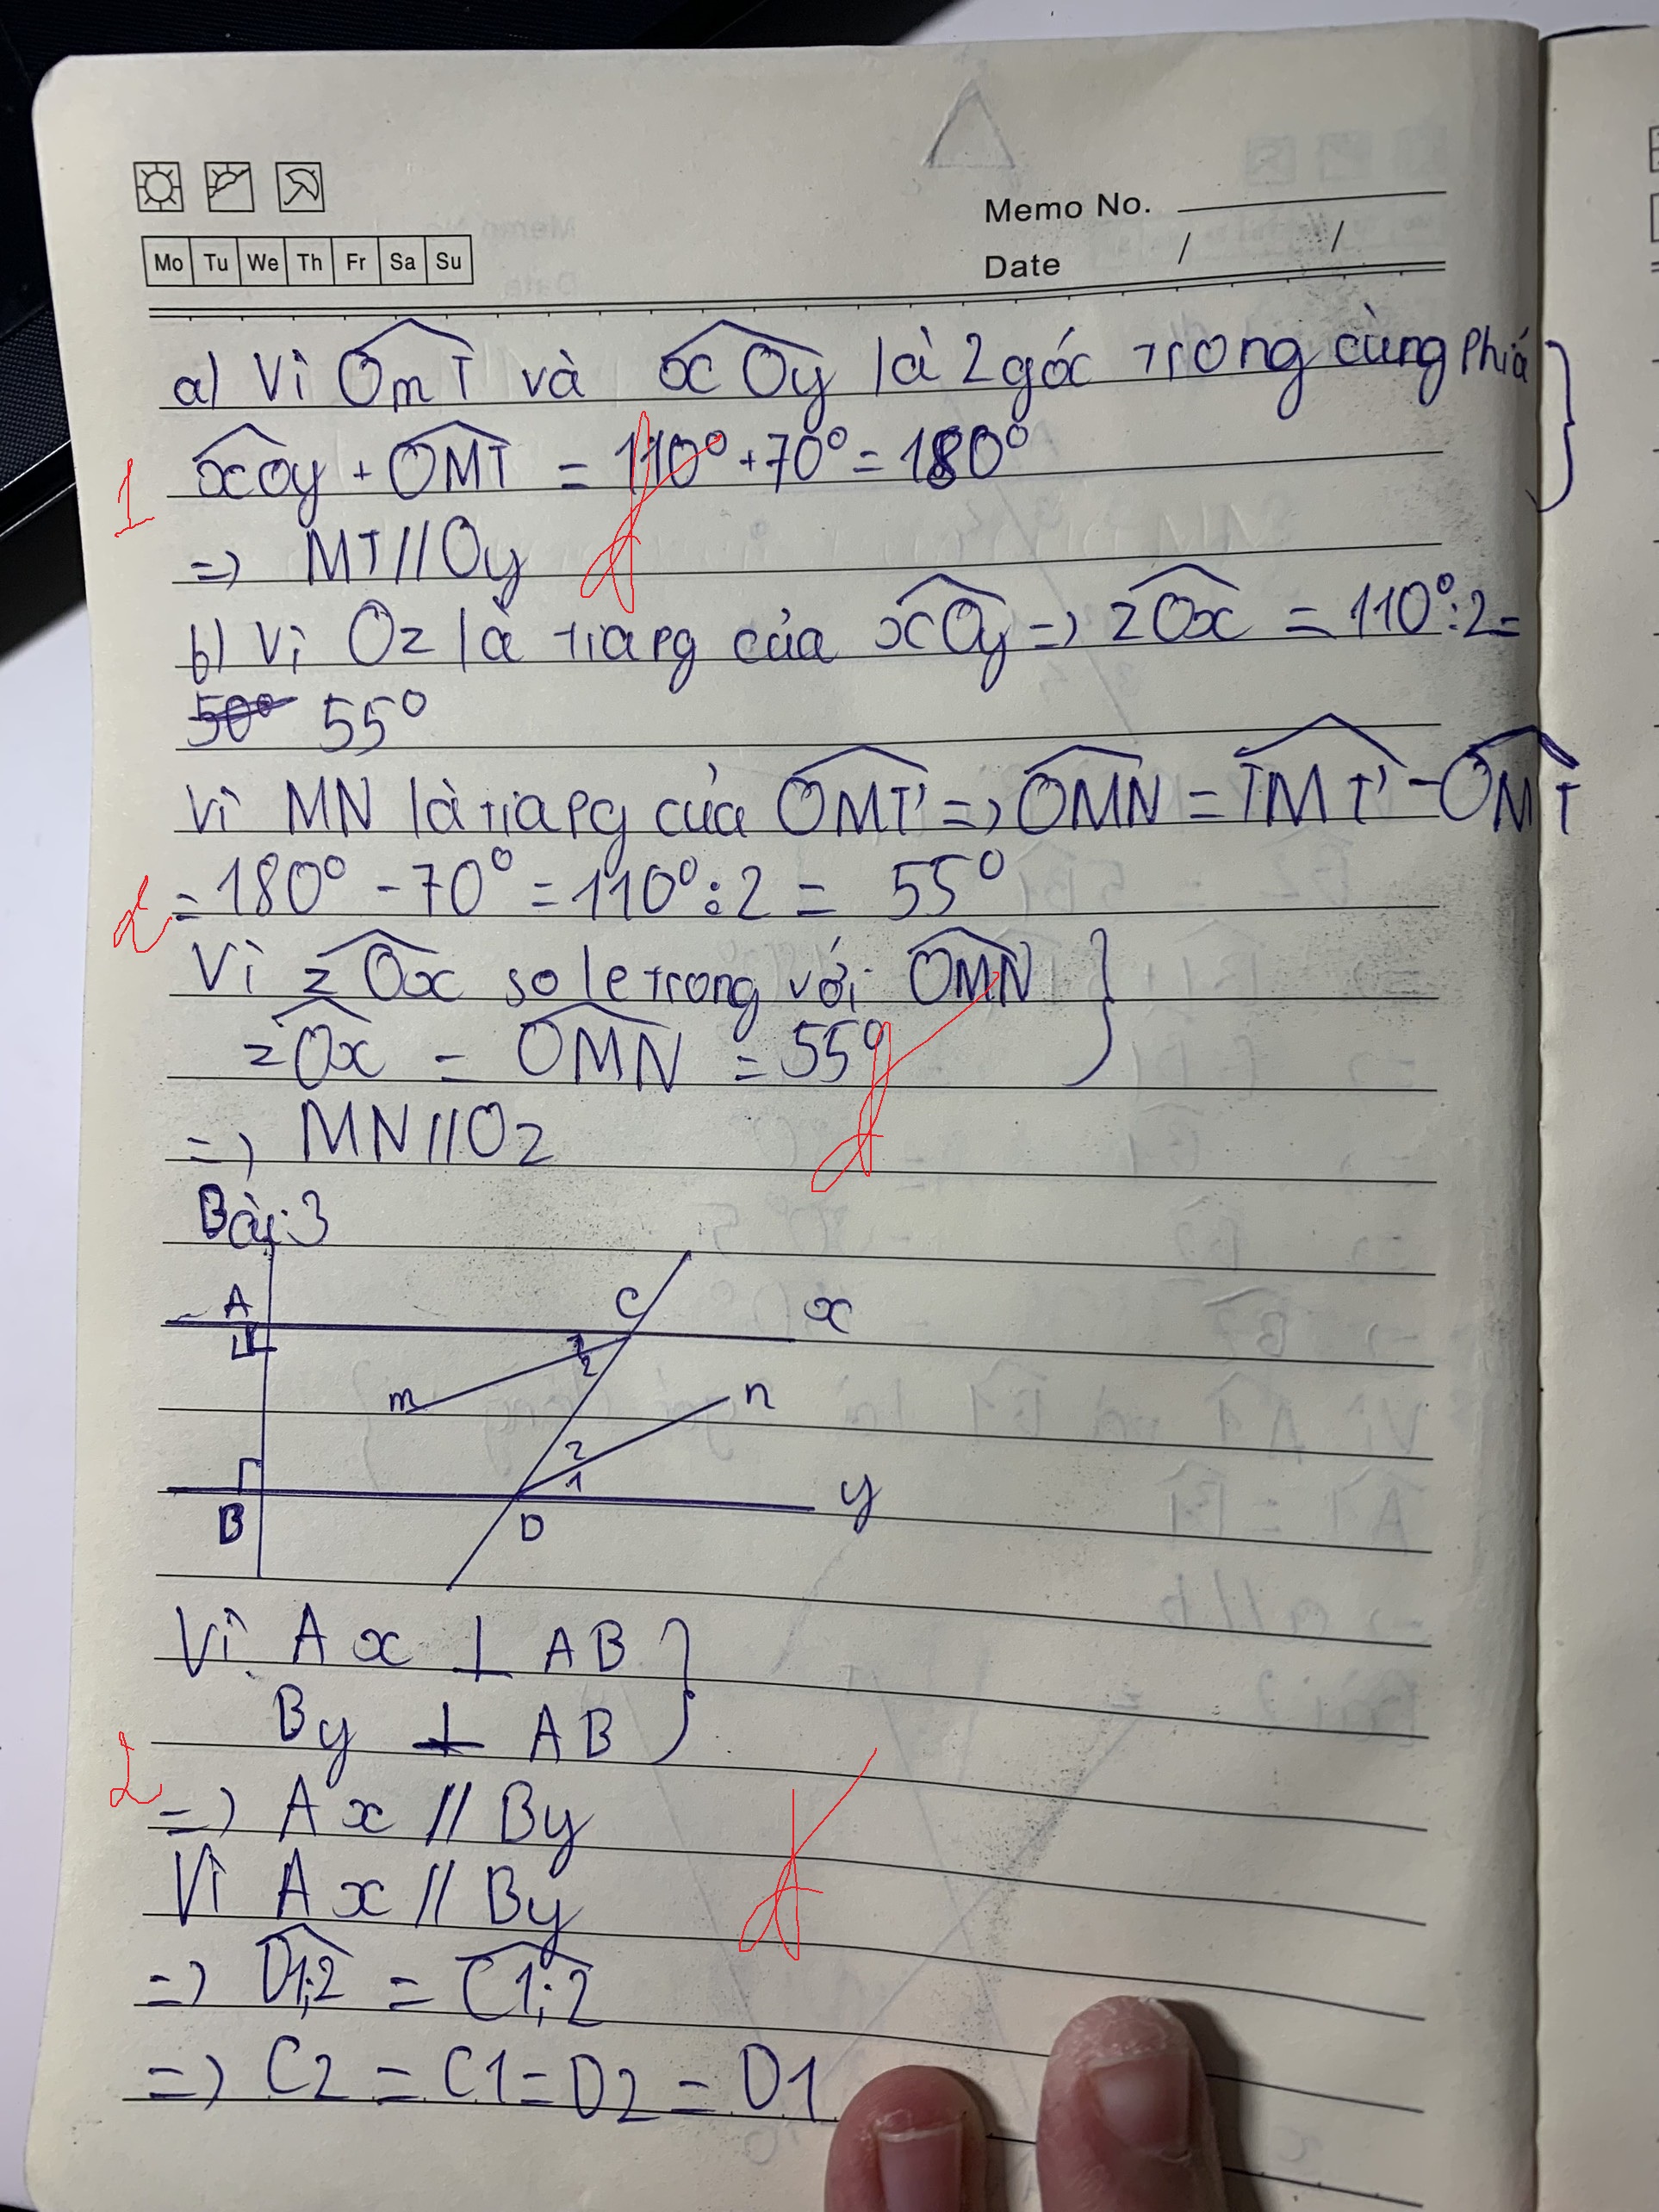 Memo No.
Mo Tu We Th Fr Sa Su
Date / /
a) Vì OmT và xOy là 2 góc trong cùng phía
1 xOy + OMT = 110° + 70° = 180°
=> MT // Oy đ
b) Vì Oz là tia pg của xOy => zOx = 110° : 2 =
50° 55°
Vì MN là tia pg của OMT' => OMN = TMT' - OMT
= 180° - 70° = 110° : 2 = 55°
Vì zOx so le trong với OMN
zOx = OMN = 55°
=> MN // Oz
Bài 3
A C x
1 2
m n
2
1
B D y
Vì Ax ⊥ AB
By ⊥ AB
2 => Ax // By
Vì Ax // By
=> D1;2 = C1;2
=> C2 = C1 = D2 = D1